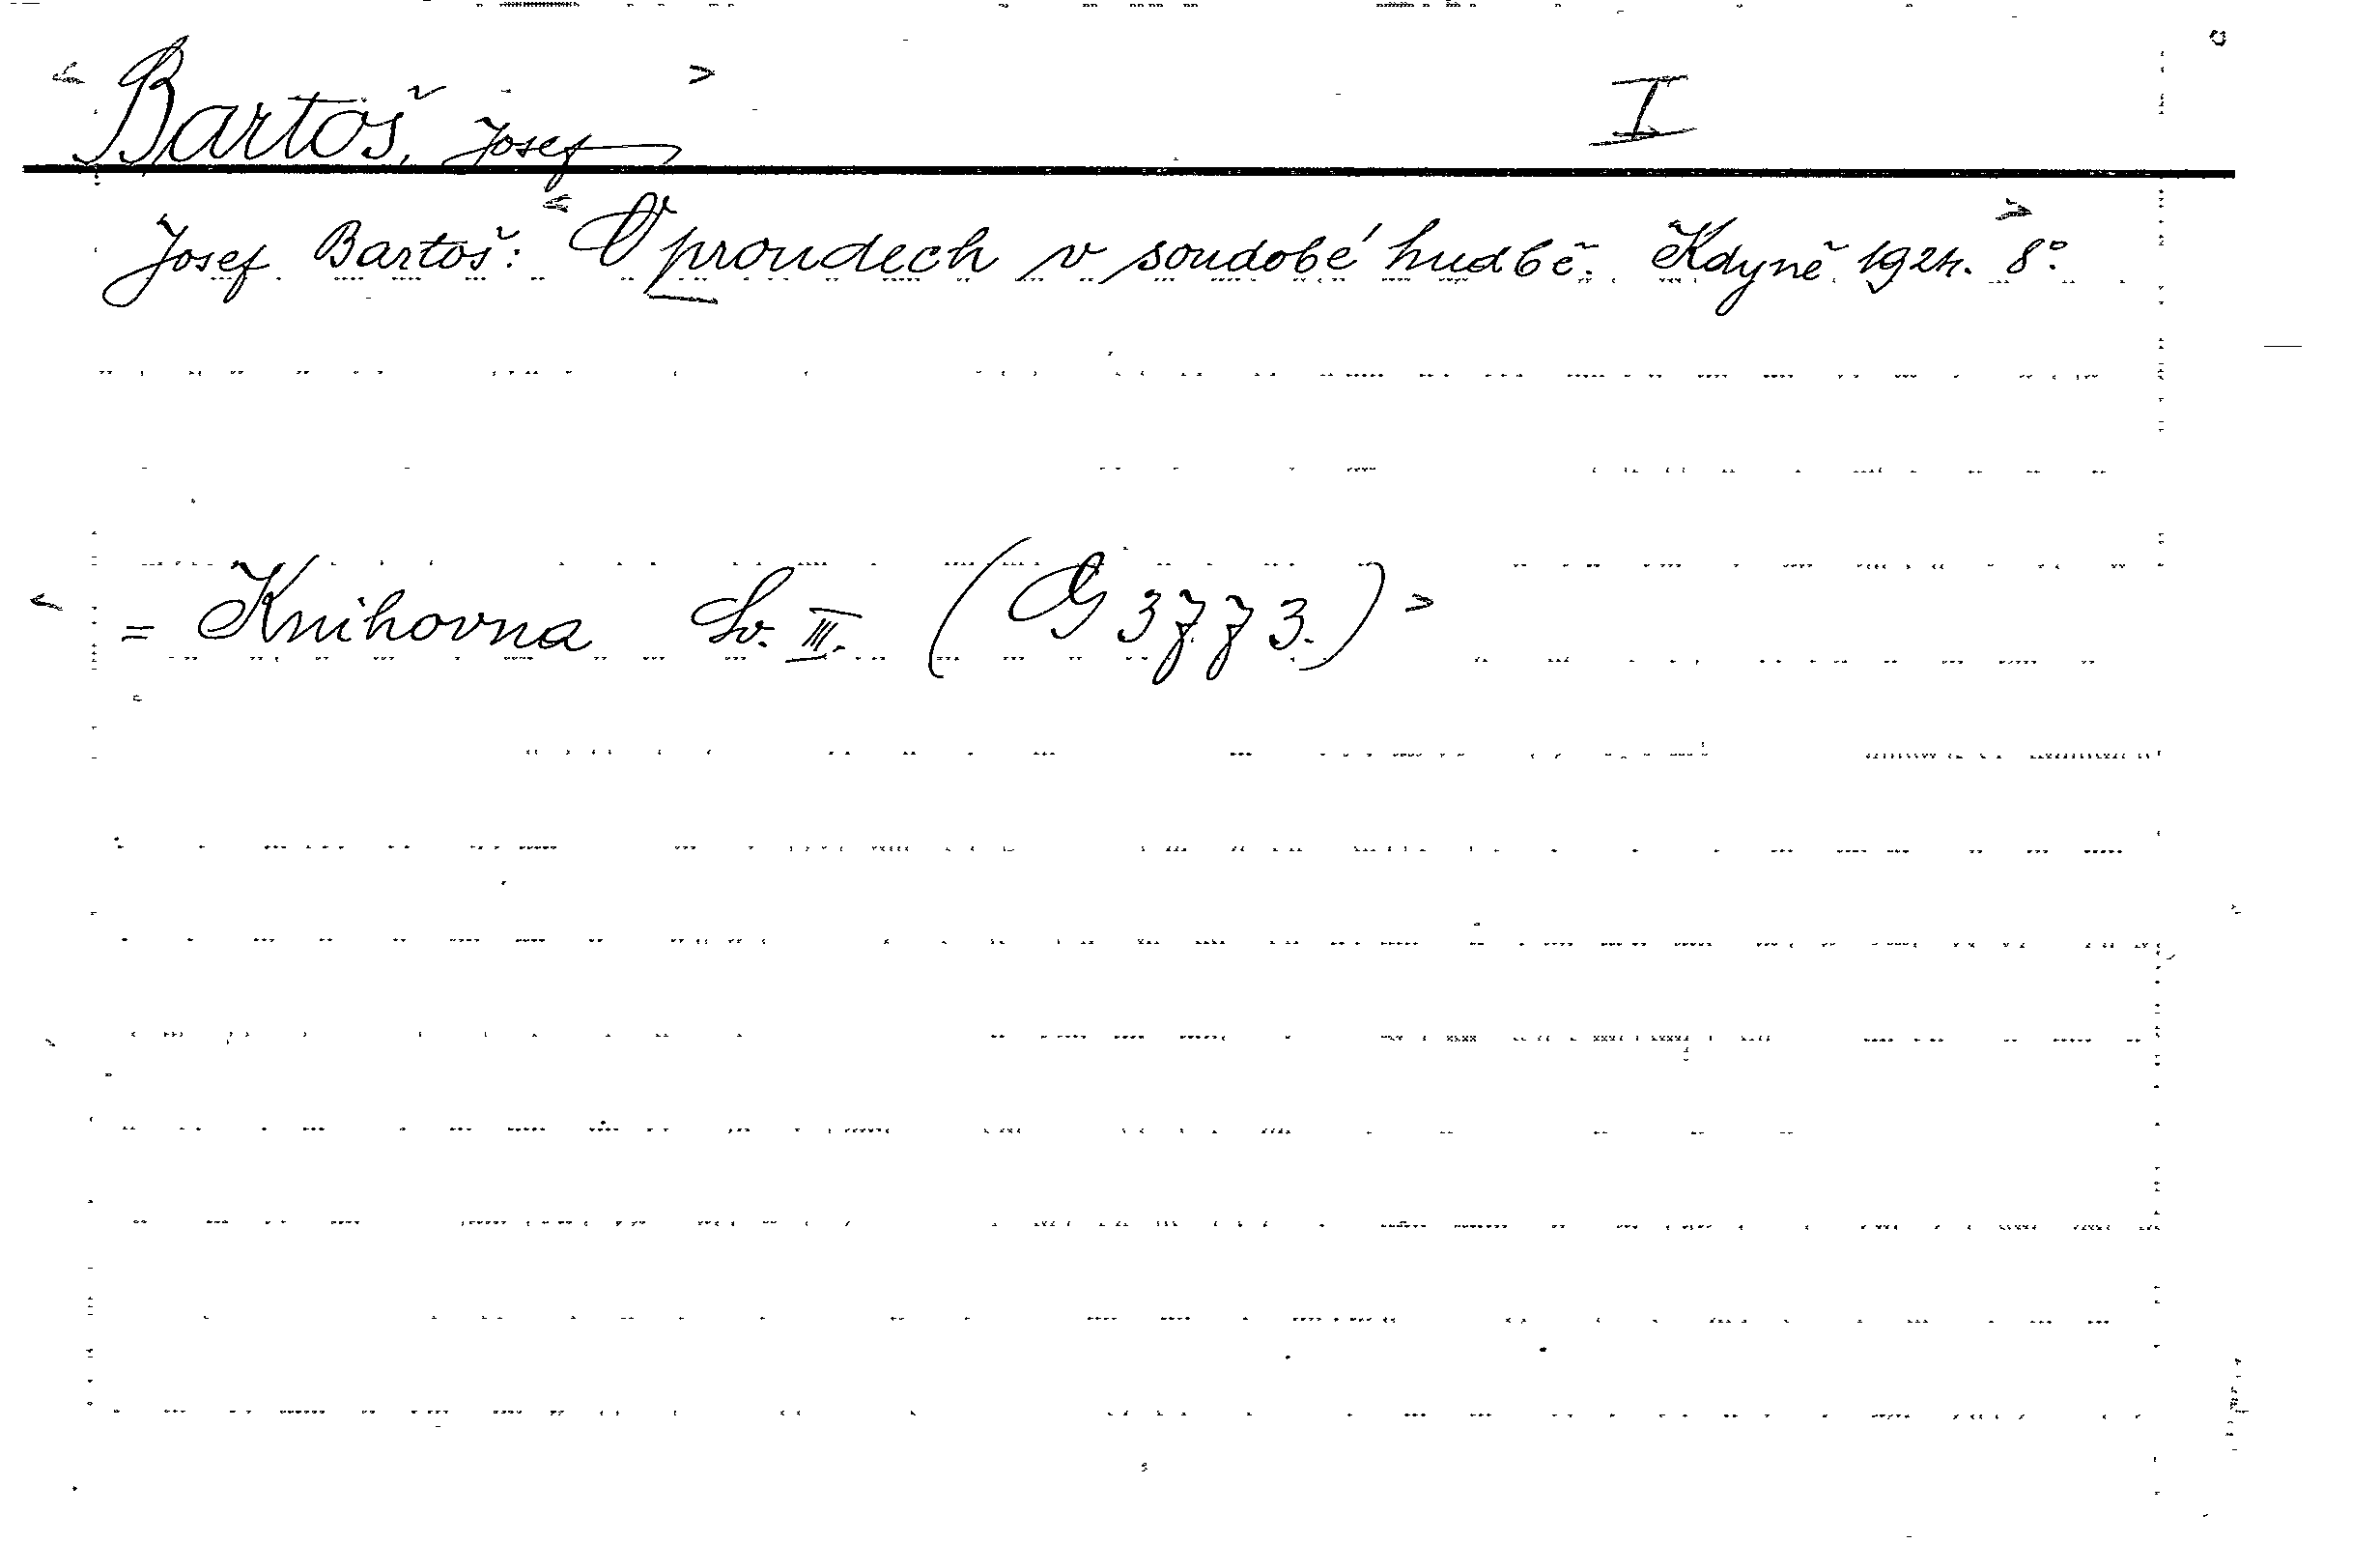 < Bartoš, Josef > I
Josef Bartoš: < O proudech v soudobé hudbě. Kdyně 1924. > 8°.
< = Knihovna Sv. III. (G 3773.) >